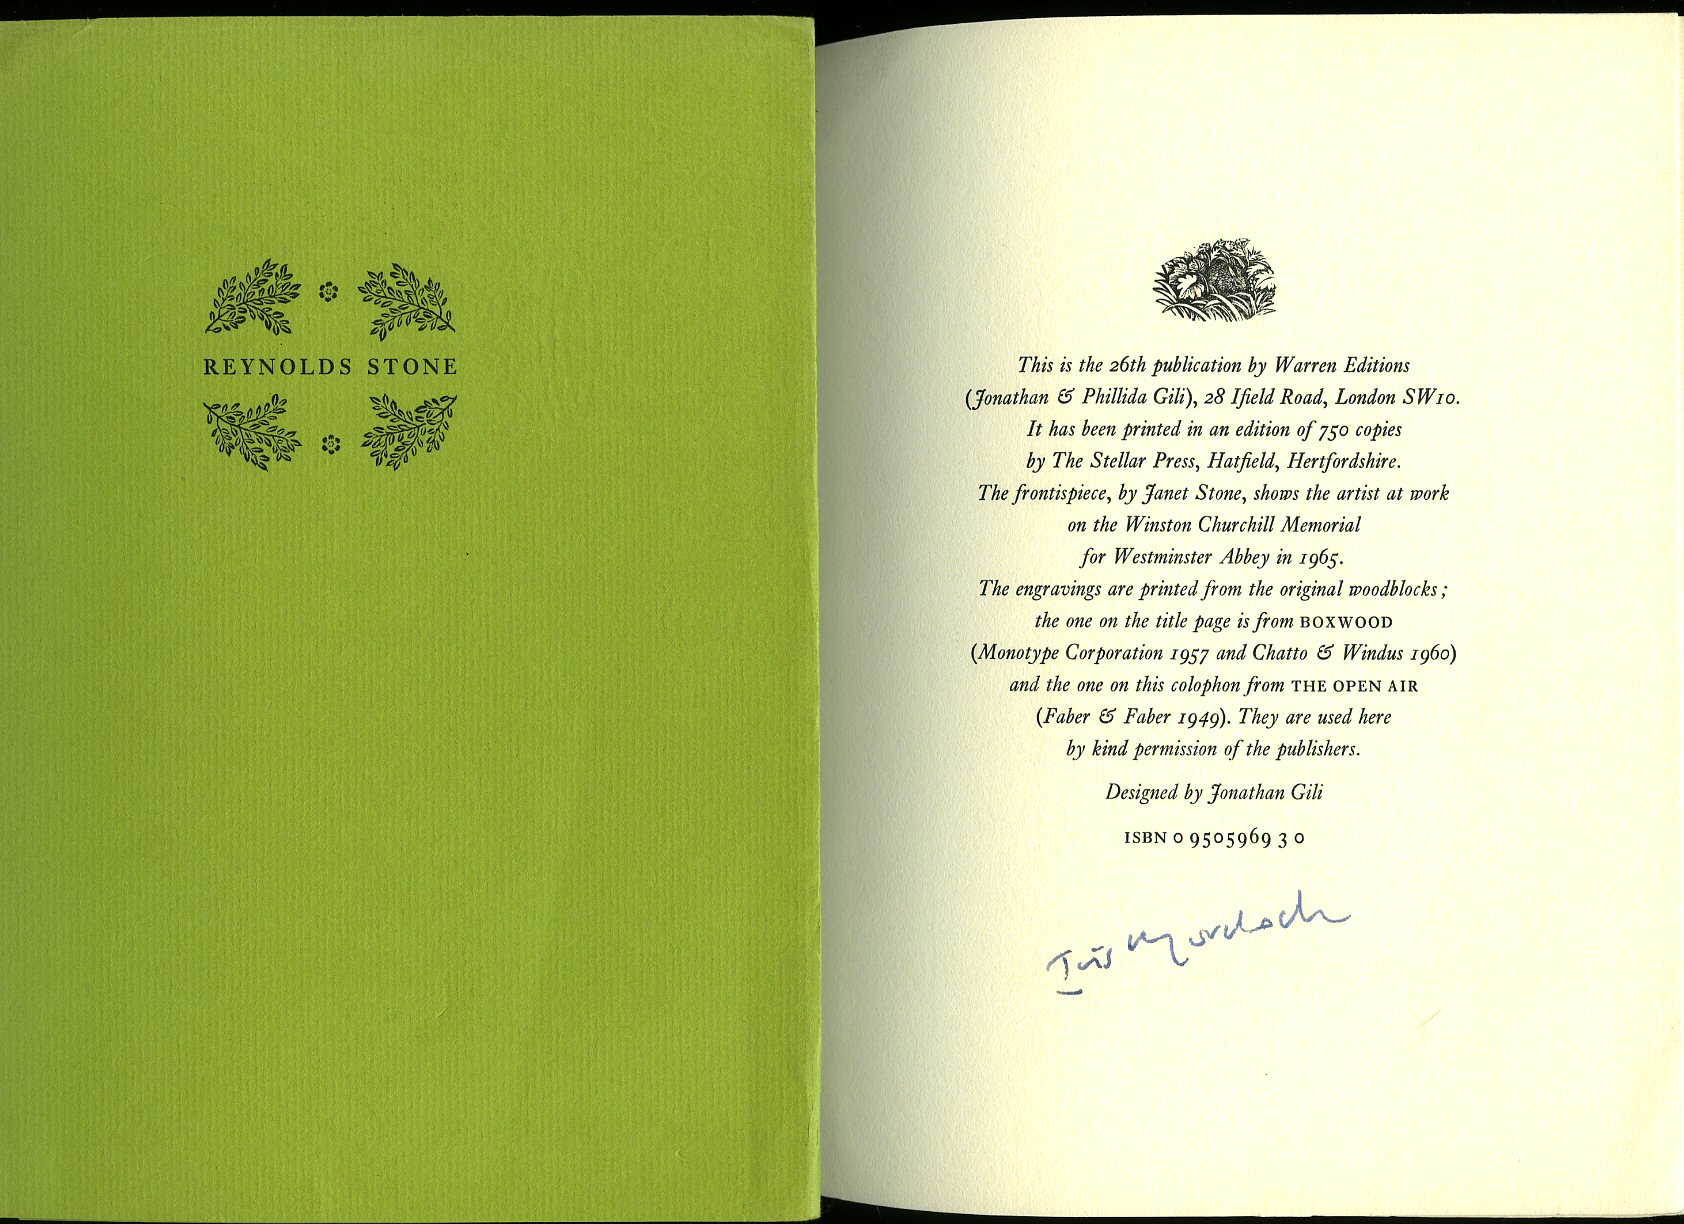 REYNOLDS STONE
This is the 26th publication by Warren Editions
(Jonathan & Phillida Gili), 28 Ifield Road, London SW10.
It has been printed in an edition of 750 copies
by The Stellar Press, Hatfield, Hertfordshire.
The frontispiece, by Janet Stone, shows the artist at work
on the Winston Churchill Memorial
for Westminster Abbey in 1965.
The engravings are printed from the original woodblocks;
the one on the title page is from BOXWOOD
(Monotype Corporation 1957 and Chatto & Windus 1960)
and the one on this colophon from THE OPEN AIR
(Faber & Faber 1949). They are used here
by kind permission of the publishers.
Designed by Jonathan Gili
ISBN 0 9505969 3 0
Iris Murdoch